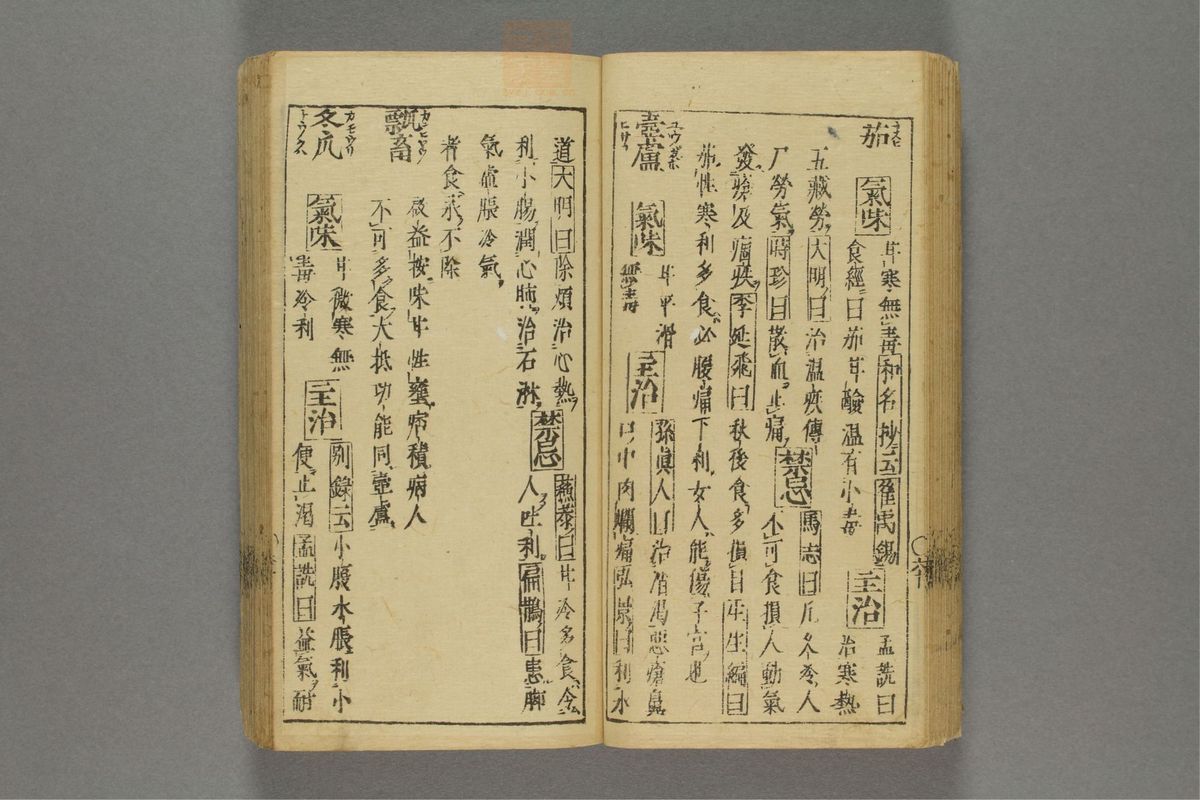 茄 氣味 甘寒無毒 和名抄云崔禹錫
食經曰茄甘酸温有小毒 主治 孟詵曰
治寒熱
五藏勞大明曰治温疾傳
尸勞氣時珍曰散血止痛 禁忌 馬志曰凡久冷人
不可食損人動氣
發瘡及痼疾李延飛曰秋後食多損目 生生編曰
茄性寒利多食必腹痛下利女人能傷子宮也
壺盧 氣味 甘平滑
無毒 主治 孫眞人曰治消渴惡瘡鼻
口中肉爛痛弘景曰利水
道大明曰除煩治心熱
利小腸潤心肺治石淋 禁忌 蘇恭曰甘冷多食令
人吐利扁鵲曰患脚
氣虛脹冷氣
者食永不除
瓢畜 段益按味甘性壅痞積病人
不可多食大抵功能同壺盧
冬瓜 氣味 甘微寒無
毒冷利 主治 別錄云小腹水脹利小
便止渴孟詵曰益氣耐